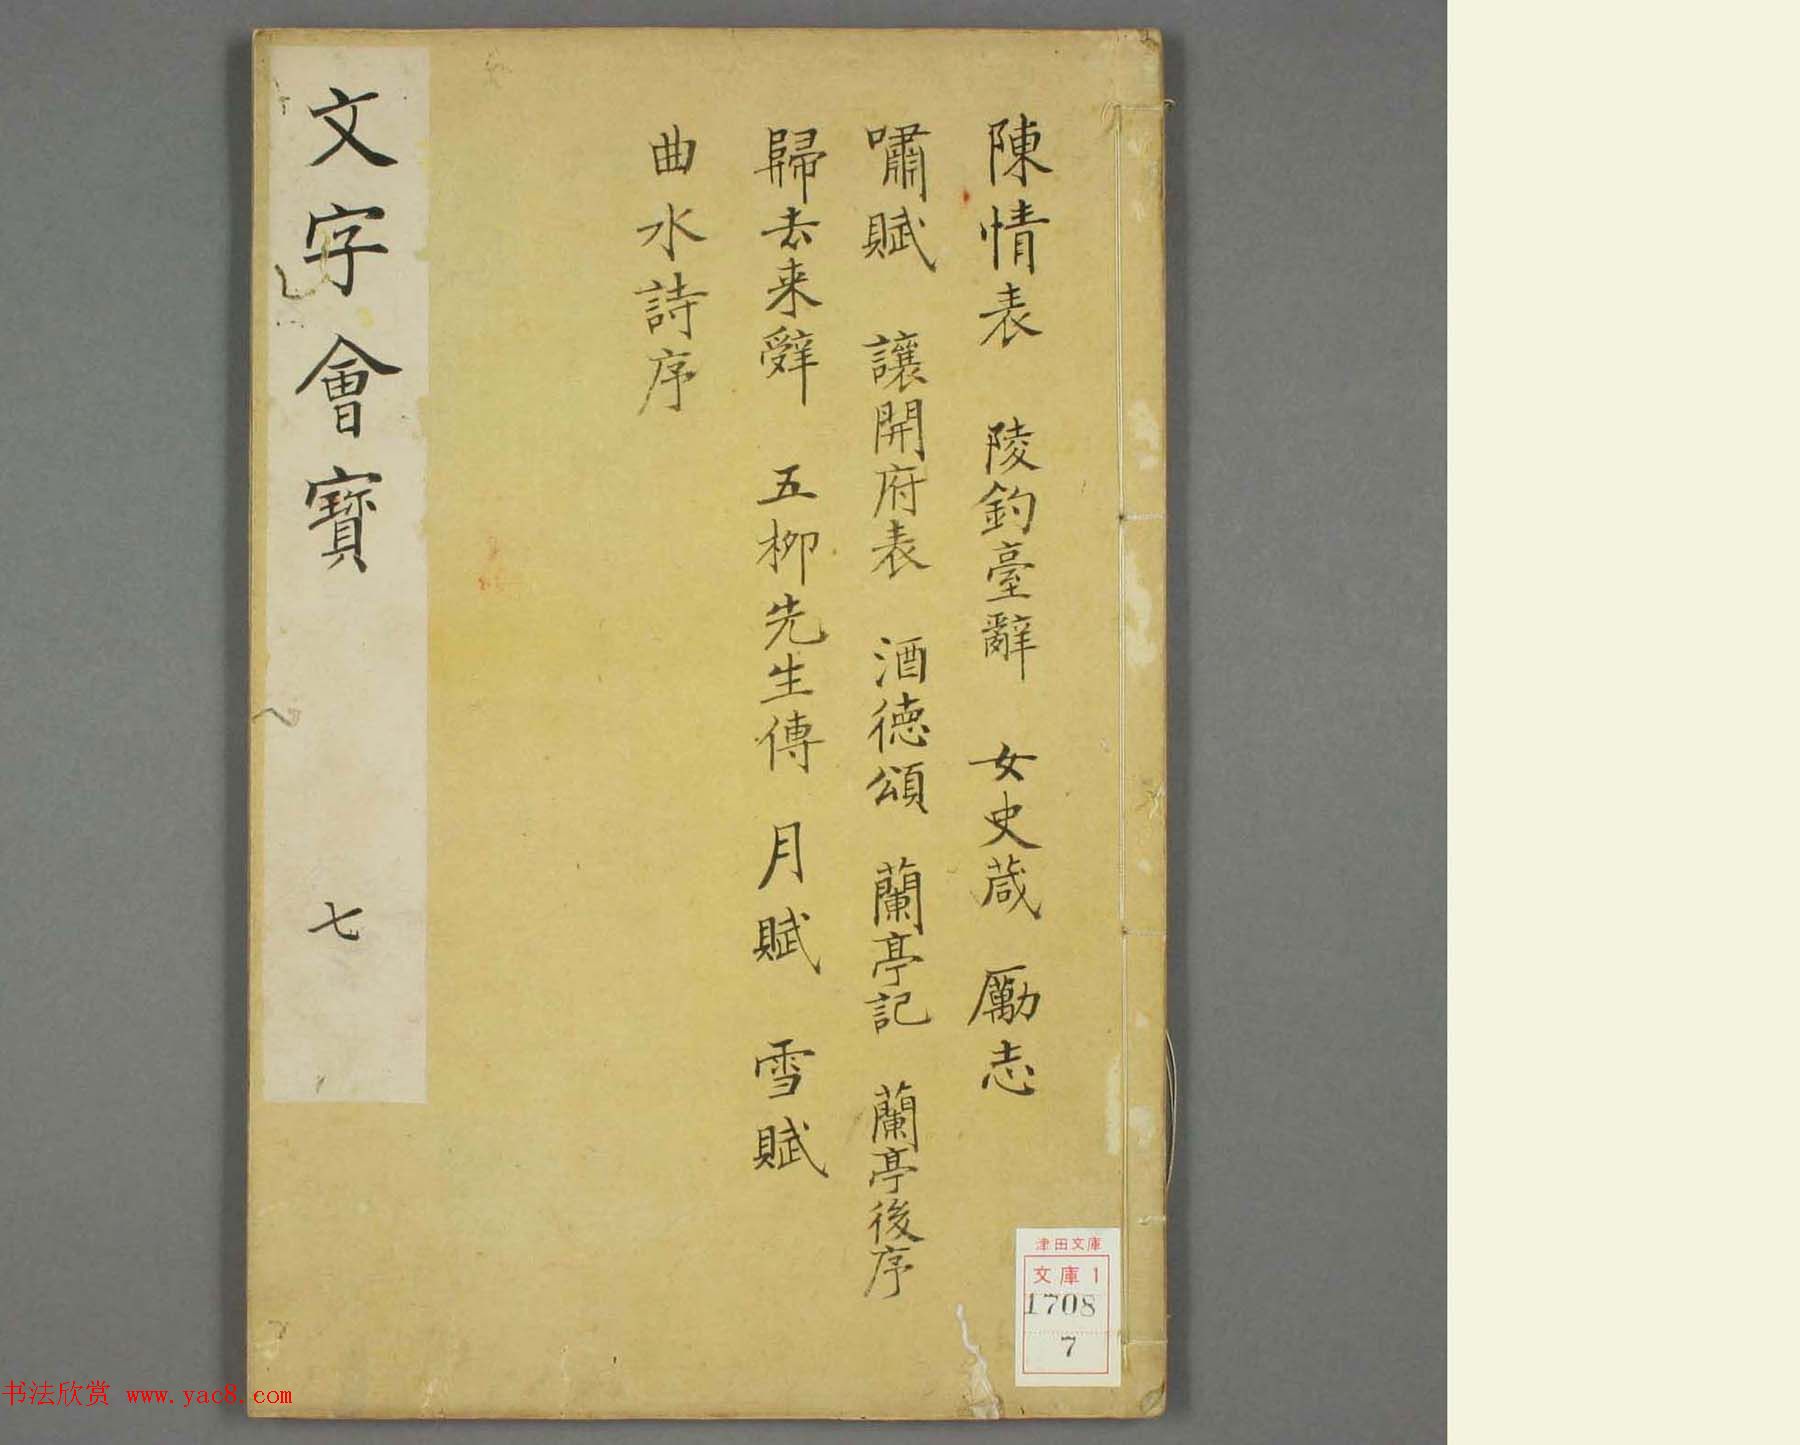 陳情表 陵釣臺辭 女史葴 勵志
嘯賦 讓開府表 酒德頌 蘭亭記 蘭亭後序
歸去来辤 五柳先生傳 月賦 雪賦
曲水詩序
文字會寳 七
津田文庫
文庫1
1708
7
书法欣赏 www.yac8.com